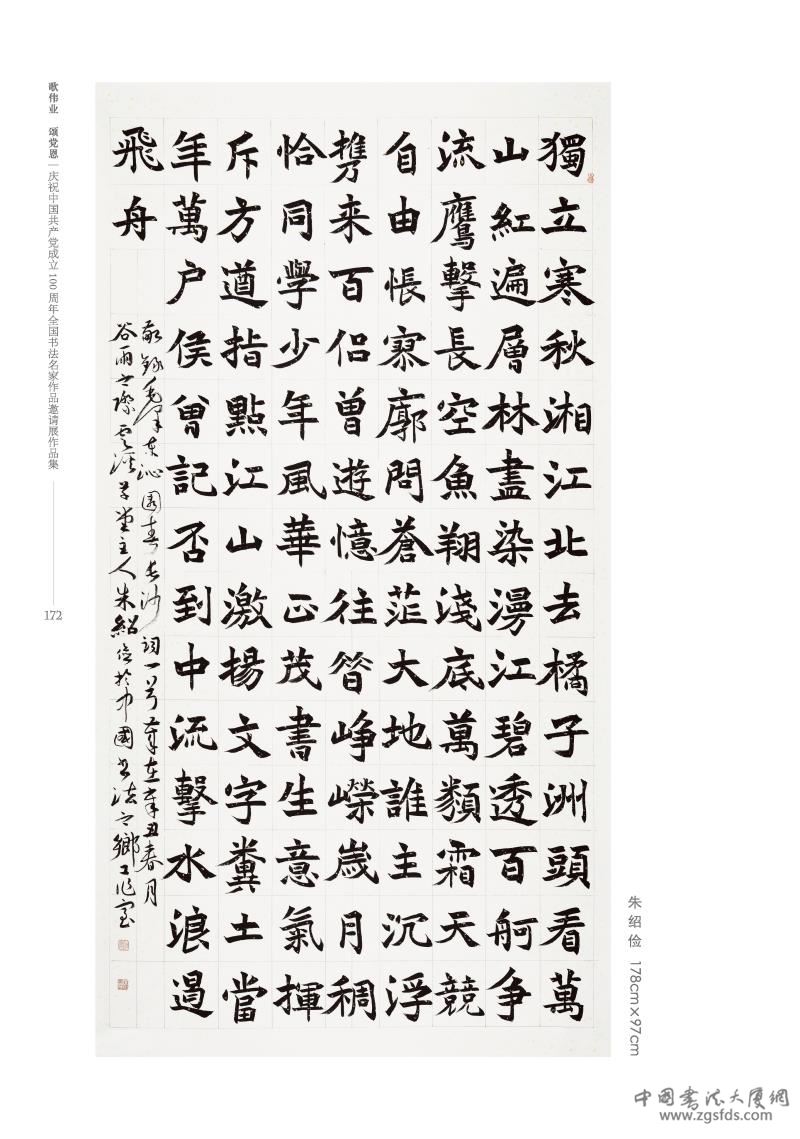 獨立寒秋湘江北去橘子洲頭看萬
山紅遍層林盡染漫江碧透百舸争
流鷹擊長空魚翔淺底萬類霜天競
自由悵寥廓問蒼茫大地誰主沉浮
携来百侣曾遊憶往昔峥嶸歲月稠
恰同學少年風華正茂書生意氣揮
斥方遒指點江山激揚文字糞土當
年萬户侯曾記否到中流擊水浪遏
飛舟
敬錄毛澤东沁園春長沙詞一首歲在辛丑春月
谷雨之際堂主人朱紹俭於中國书法之鄉工作室
歌伟业 颂党恩 | 庆祝中国共产党成立100周年全国书法名家作品邀请展作品集
172
朱绍俭 178cm×97cm
中国書法大厦網
www.zgsfds.com